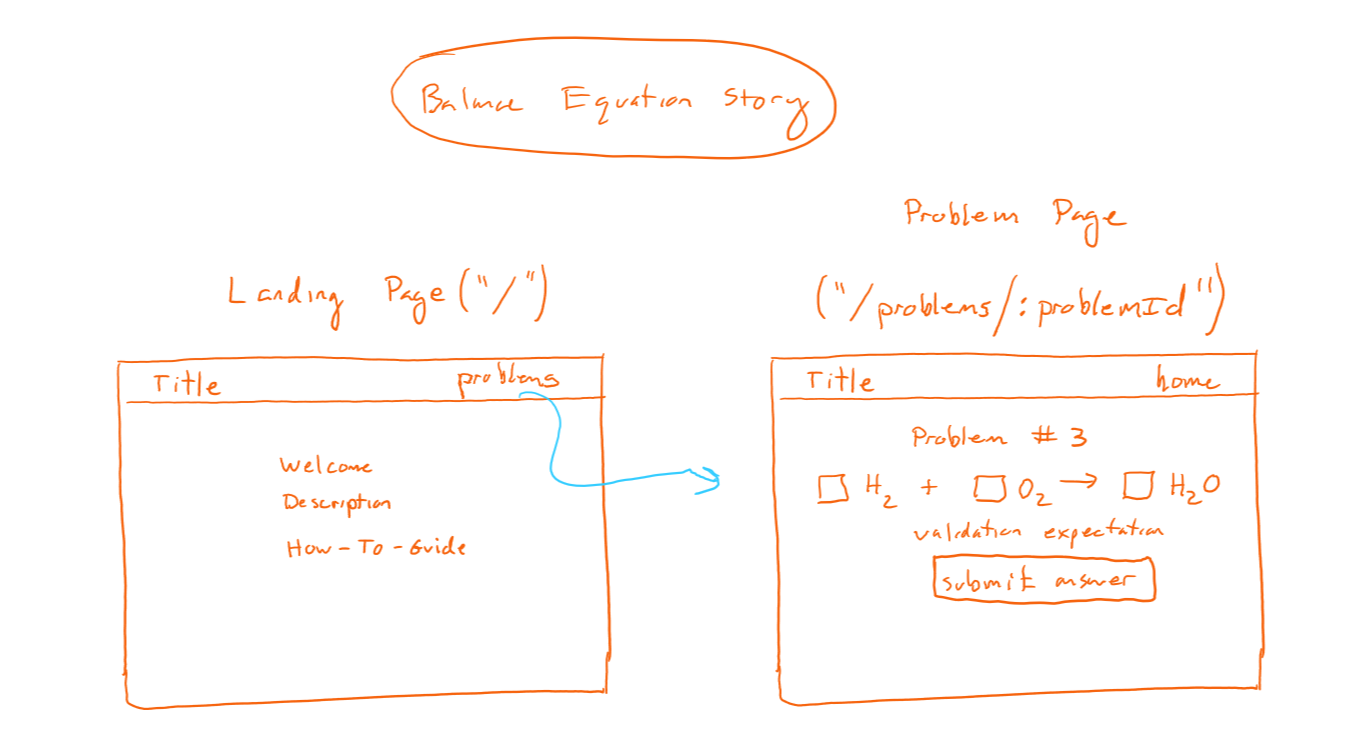 Balance Equation Story
Landing Page ("/")
Title problems
Welcome
Description
How-To-Guide
Problem Page
("/problems/:problemId")
Title home
Problem # 3
☐ H₂ + ☐ O₂ → ☐ H₂O
validation expectation
submit answer